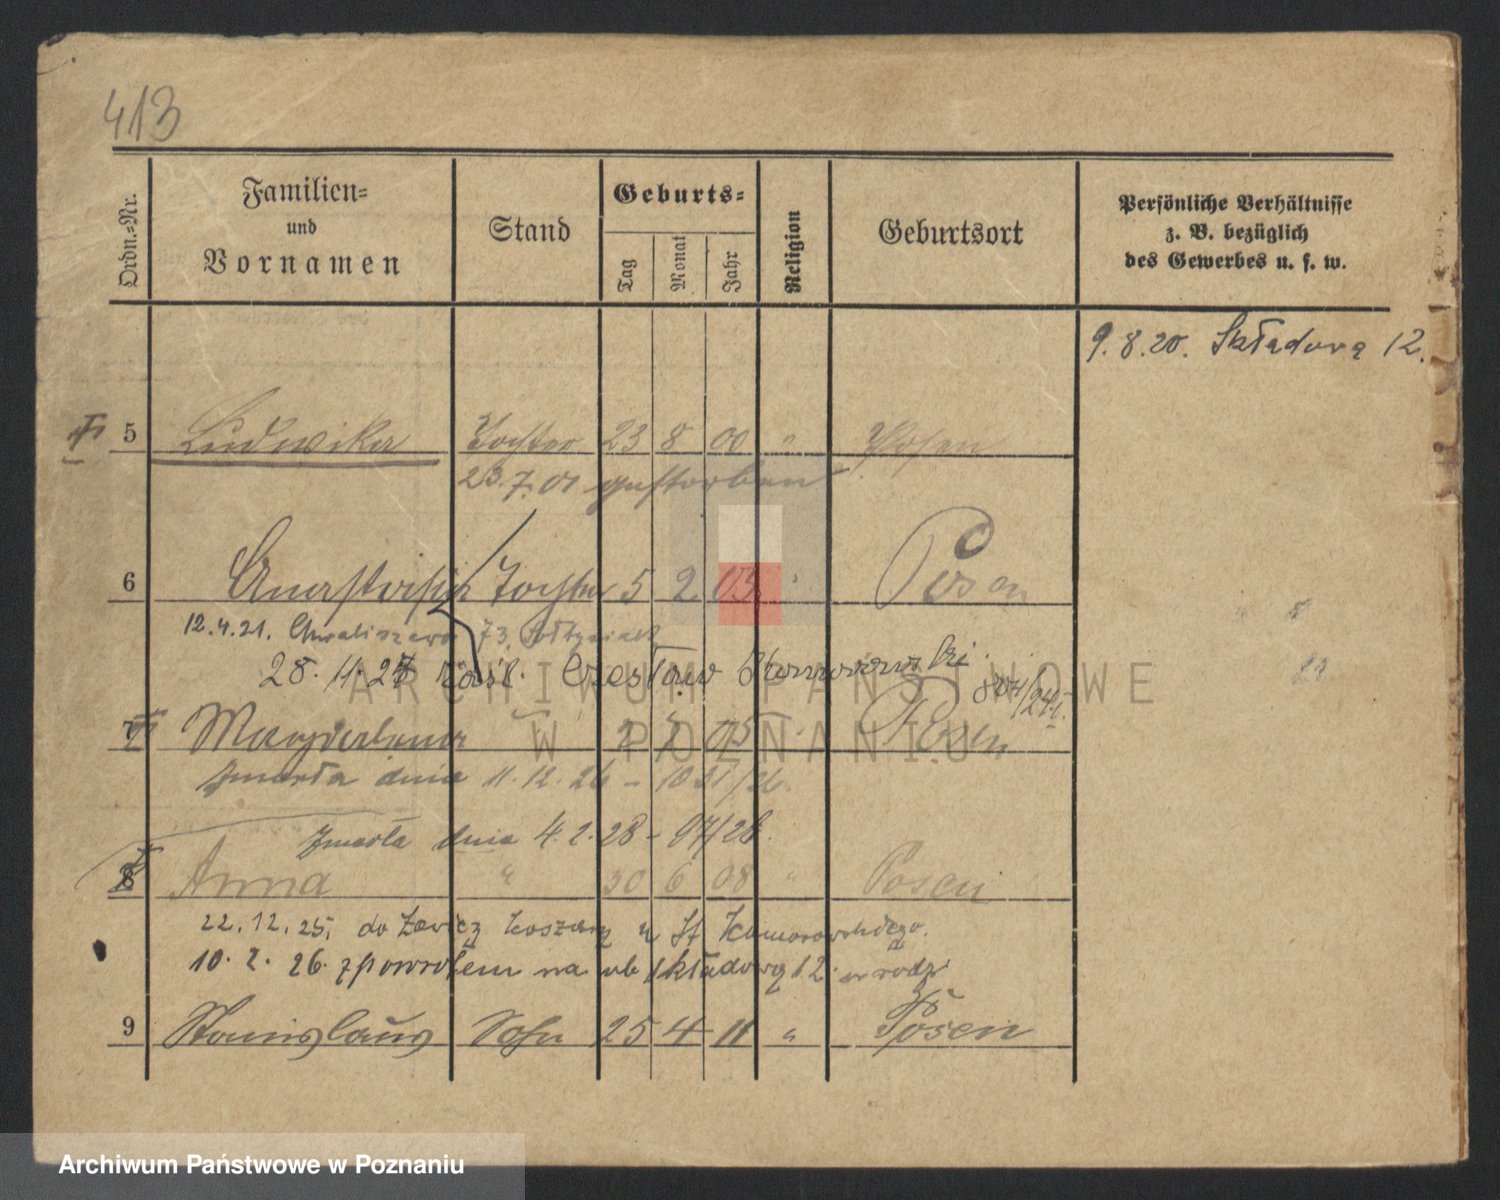 413
Ordn.-Nr.
Familien-
und
Vornamen
Stand
Geburts-
Tag
Monat
Jahr
Religion
Geburtsort
Persönliche Verhältnisse
z. B. bezüglich
des Gewerbes u. s. w.
9. 8. 20. Składowa 12.
5 Ludwika Tochter 23 8 00 " Posen
23. 7. 01 gestorben
6 Anastasia Tochter 5 2 03 " Posen
12. 4. 21. Chwaliszewo 73
28. 11. 27 Czesław
7 Magdalena 2 7 05 Posen
Zmarła dnia 11. 12. 26 -
Zmarła dnia 4. 2. 28 - 97/28.
8 Anna " 30 6 08 " Posen
22. 12. 25, do Koszar Komorowskiego.
10. 2. 26. z powrotem na ul Składową 12
9 Stanislaus Sohn 25 4 11 " Posen
ARCHIWUM PAŃSTWOWE
W POZNANIU
Archiwum Państwowe w Poznaniu